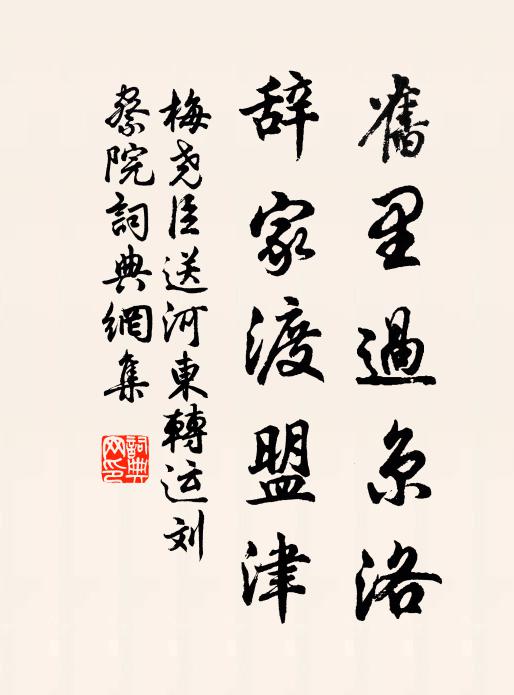 舊里過京洛
辞家渡盟津
梅尧臣送河東轉运刘
察院詞典網集
詞典网印